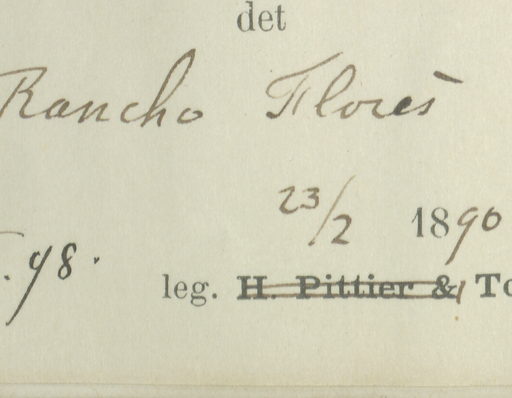 det
Rancho Flores
23/2 1890
.98.
leg. H. Pittier & To